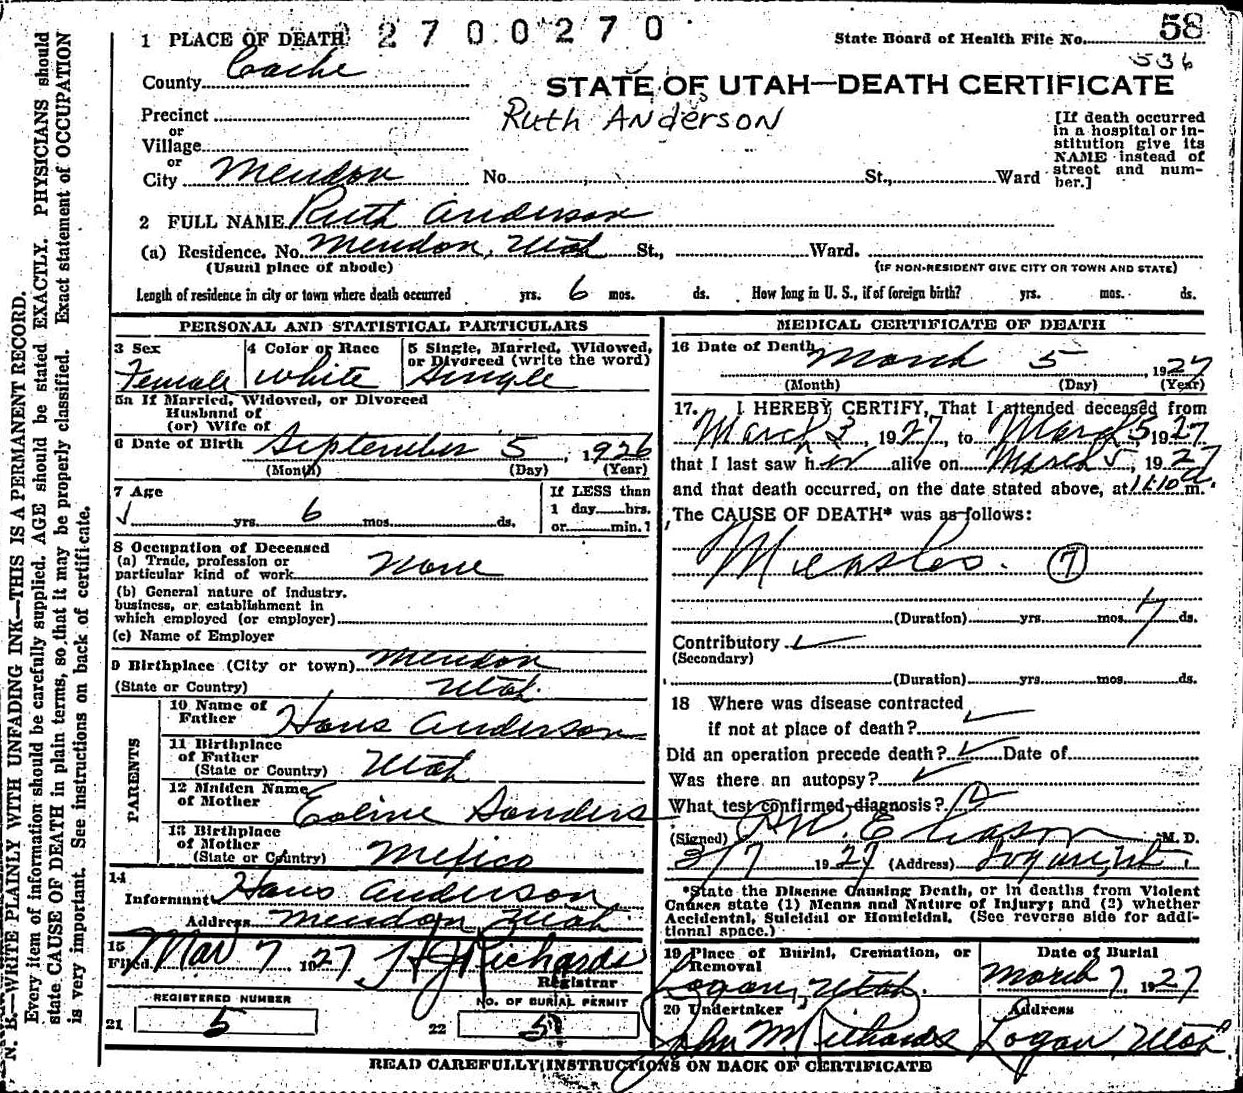 1 PLACE OF DEATH 2700270 State Board of Health File No. 58
536
County Cache
STATE OF UTAH—DEATH CERTIFICATE
Precinct
Ruth Anderson
or
Village
or
City Mendon No. St., Ward
[If death occurred
in a hospital or in-
stitution give its
NAME instead of
street and num-
ber.]
2 FULL NAME Ruth Anderson
(a) Residence. No. Mendon, Utah St., Ward.
(Usual place of abode) (IF NON-RESIDENT GIVE CITY OR TOWN AND STATE)
Length of residence in city or town where death occurred yrs. 6 mos. ds. How long in U. S., if of foreign birth? yrs. mos. ds.
PERSONAL AND STATISTICAL PARTICULARS
3 Sex 4 Color or Race 5 Single, Married, Widowed,
or Divorced (write the word)
Female White Single
5a If Married, Widowed, or Divorced
Husband of
(or) Wife of
6 Date of Birth September 5, 1926
(Month) (Day) (Year)
7 Age If LESS than
1 day hrs.
yrs. 6 mos. ds. or min.?
8 Occupation of Deceased
(a) Trade, profession or
particular kind of work None
(b) General nature of Industry,
business, or establishment in
which employed (or employer)
(c) Name of Employer
9 Birthplace (City or town) Mendon
(State or Country) Utah.
PARENTS
10 Name of
Father Hans Anderson
11 Birthplace
of Father
(State or Country) Utah
12 Maiden Name
of Mother Eoline Sanders
13 Birthplace
of Mother
(State or Country) Mexico
14
Informant Hans Anderson
Address Mendon Utah
15
Filed Mar 7 1927 H J Richards
Registrar
REGISTERED NUMBER NO. OF BURIAL PERMIT
21 5 22 5
MEDICAL CERTIFICATE OF DEATH
16 Date of Death March 5, 1927
(Month) (Day) (Year)
17. I HEREBY CERTIFY, That I attended deceased from
March 3, 1927, to March 5 1927
that I last saw her alive on March 5, 1927
and that death occurred, on the date stated above, at 11:10 a m.
The CAUSE OF DEATH* was as follows:
Measles. 7
(Duration) yrs. mos. 7 ds.
Contributory
(Secondary)
(Duration) yrs. mos. ds.
18 Where was disease contracted
if not at place of death?
Did an operation precede death? Date of
Was there an autopsy?
What test confirmed diagnosis?
(Signed) Eliason M. D.
3/7 1927 (Address) Logan, Ut
*State the Disease Causing Death, or in deaths from Violent
Causes state (1) Means and Nature of Injury; and (2) whether
Accidental, Suicidal or Homicidal. (See reverse side for addi-
tional space.)
19 Place of Burial, Cremation, or Date of Burial
Removal
Logan, Utah. March 7, 1927
20 Undertaker Address
John M Richards Logan, Utah
READ CAREFULLY INSTRUCTIONS ON BACK OF CERTIFICATE
N. B.—WRITE PLAINLY WITH UNFADING INK—THIS IS A PERMANENT RECORD.
Every item of information should be carefully supplied. AGE should be stated EXACTLY. PHYSICIANS should
state CAUSE OF DEATH in plain terms, so that it may be properly classified. Exact statement of OCCUPATION
is very important. See instructions on back of certificate.